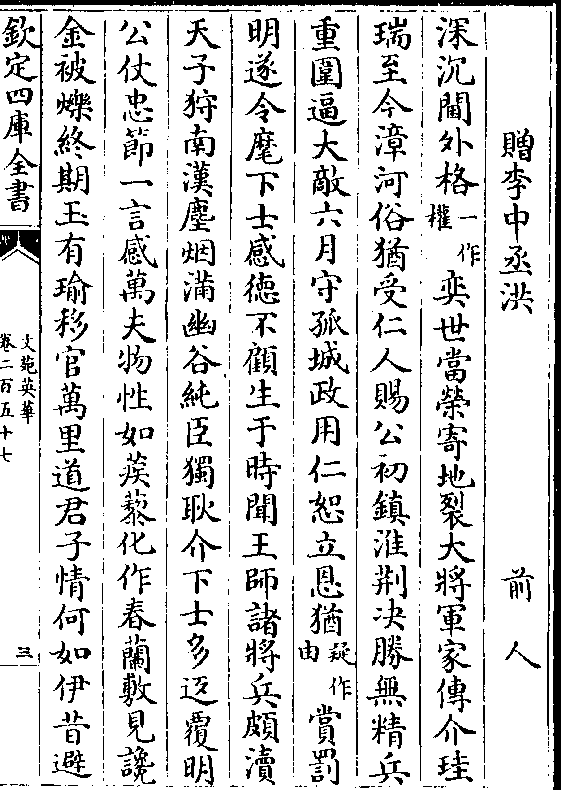 贈李中丞洪 前人
深沉閫外格一作權奕世當榮寄地裂大將軍家傳介珪
瑞至今漳河俗猶受仁人賜公初鎮淮荆决勝無精兵
重圍逼大敵六月守孤城政用仁恕立恩猶疑作由賞罰
明遂令麾下士感徳不顧生于時聞王師諸將兵頗瀆
天子狩南漢塵烟滿幽谷純臣獨耿介下士多迓覆明
公仗忠節一言感萬夫物性如蒺藜化作春蘭敷見讒
金被爍終期玉有瑜移官萬里道君子情何如伊昔避
欽定四庫全書
文苑英華
卷二百五十七
三